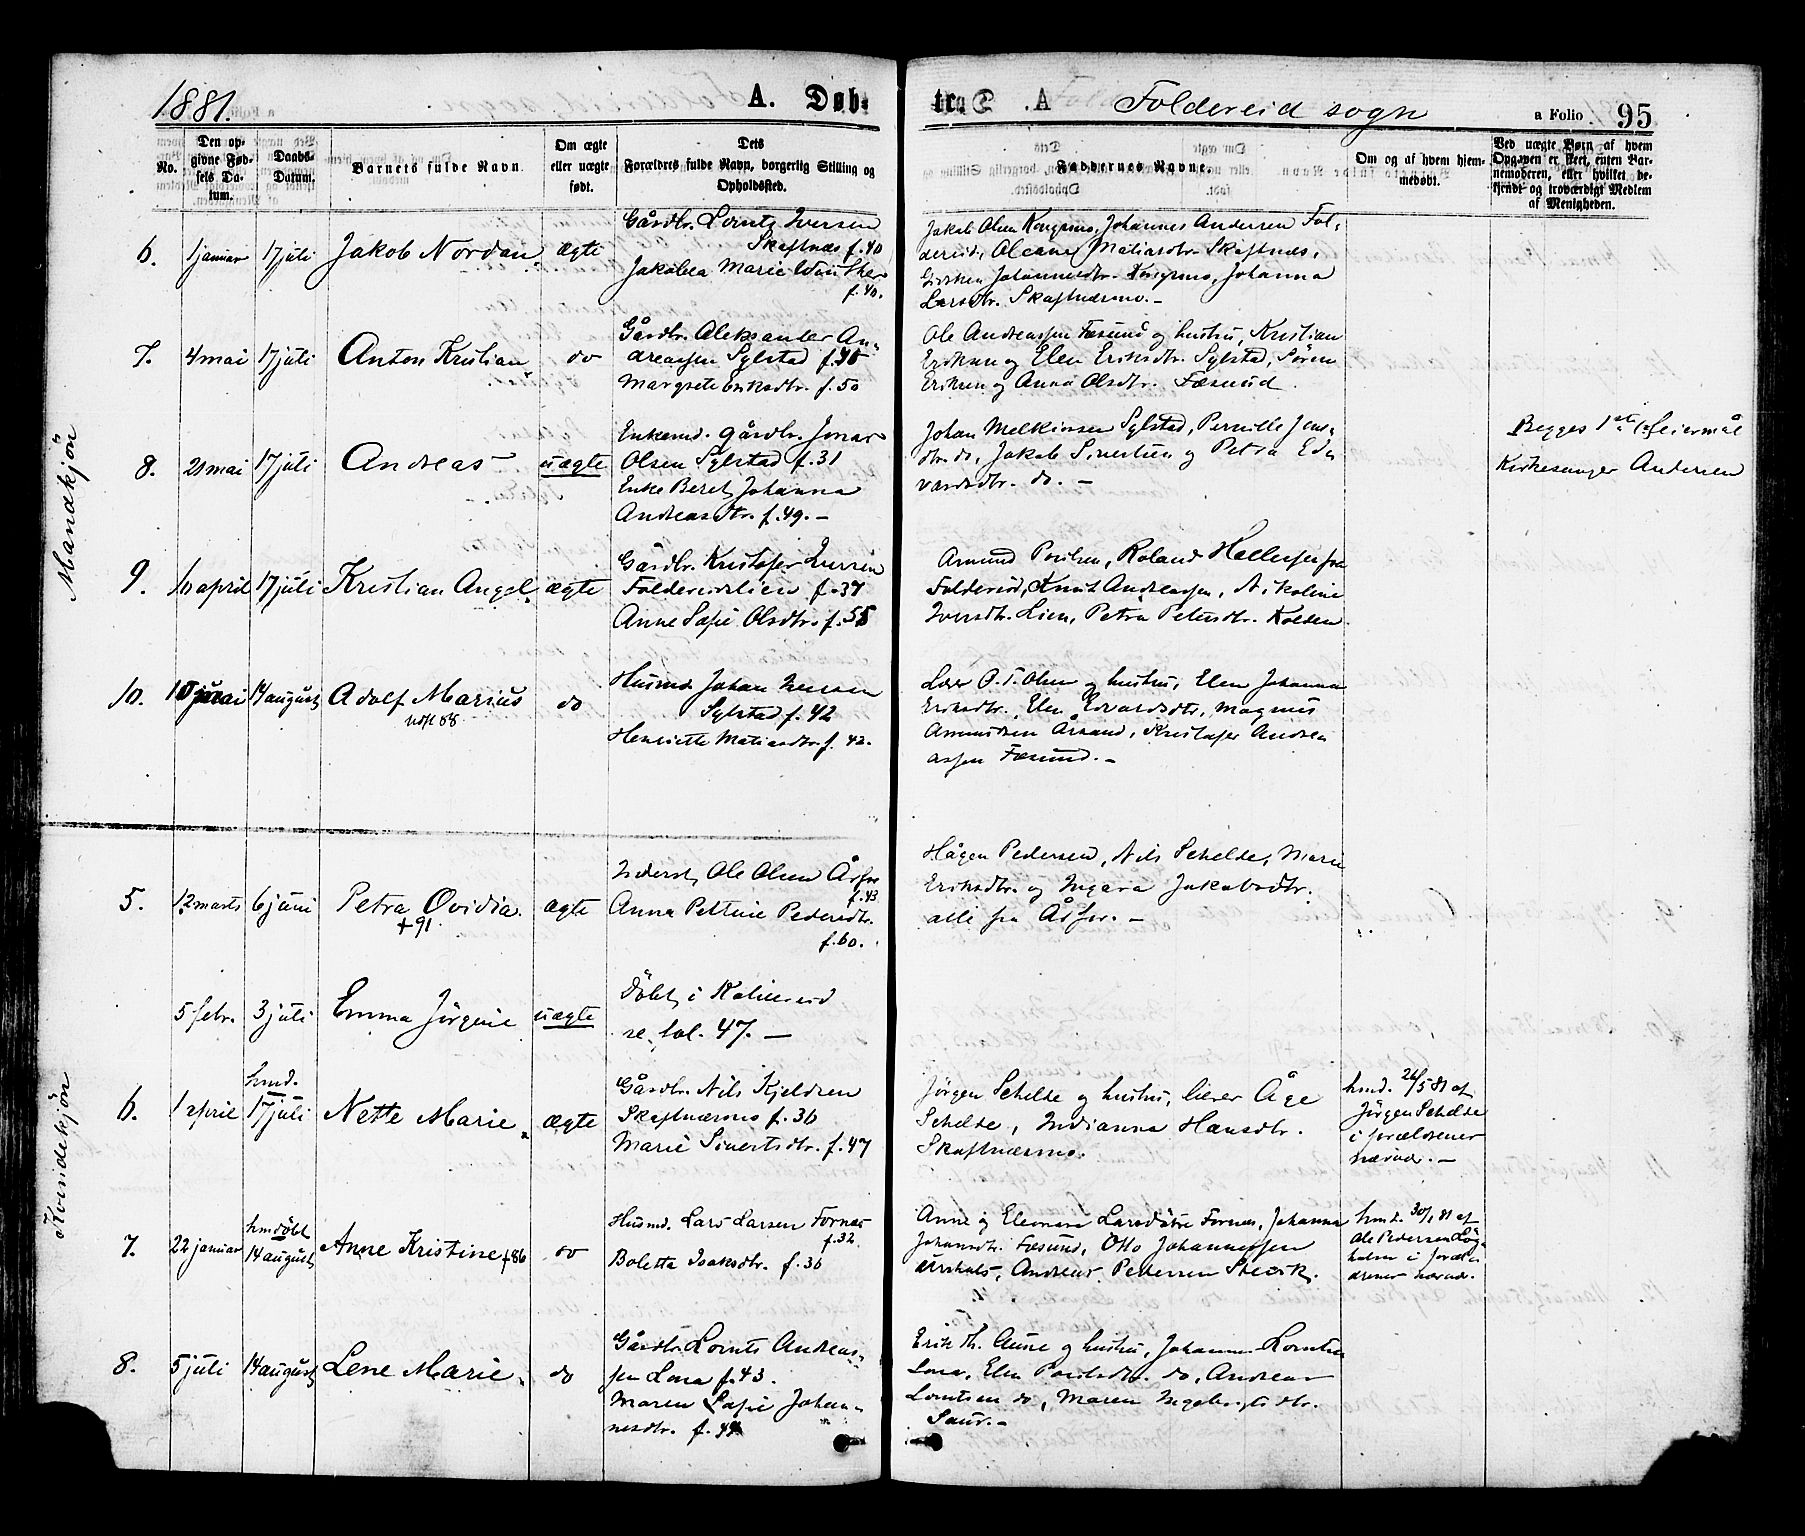 1881.
A. Døb-
tra S. A
Foldereid sogn
a Folio 95
No.
Den op-
givne Fød-
sels Da-
tum.
Daabs-
Datum.
Barnets fulde Navn.
Om ægte
eller uægte
født.
Dets
Forældres fulde Navn, borgerlig Stilling og
Opholdssted.
Faddernes Navne.
Om og af hvem hjem-
medøbt.
Ved uægte Børn af hvem
Opgaven er skeet, enten Bar-
nemoderen, eller hvilket be-
kjendt og troværdigt Medlem
af Menigheden.
Mandkjøn
6. 1 januar 17 juli Jakob Nordan ægte
Gårdbr. Lorntz Iversen
Skaftnæs f. 40
Jakobea Marie Winther
f. 40.
Jakob Olsen Kongsmo, Johannes Andersen Fol-
dereid, Matiasdtr. Skaftnæs,
Johannesdtr. Kongsmo, Johanna
Larsdtr. Skaftnæsmo. -
7. 4 mai 17 juli Anton Kristian do
Gårdbr. Aleksander An-
dreassen Sylstad f. 45
Margrete Eriksdtr. f. 50
Ole Andreassen Fæsund og hustru, Kristian
Eriksen og Elen Eriksdtr. Sylstad, Søren
Eriksen og Anna Olsdtr. Fæsund.
8. 21 mai 17 juli Andreas uægte
Enkemd. gårdbr. Jonas
Olsen Sylstad f. 31
Enke Beret Johanna
Andreasdtr. f. 49. -
Johan Melkiorsen Sylstad, Pernille Jens-
dtr. do, Jakob Sivertsen og Petra Ed-
vardsdtr. do. -
Begges 1ste leiermål
Kirkesanger Andersen
9. 10 april 17 juli Kristian Angel ægte
Gårdbr. Kristofer Iversen
Foldereidlien f. 37
Anne Sofie Olsdtr. f. 55
Amund Poulsen, Roland Hallesen fra
Foldereid, Knut Andreassen, Nikoline
Iversdtr. Lien, Petra Petersdtr. Kolden
10. 10 juni 14 august Adolf Marius do
Husmd. Johan Iversen
Sylstad f. 42
Henriette Matiasdtr. f. 42.
Lærer O. T. Olsen og hustru, Elen Johanna
Eriksdtr., Elen Edvardsdtr., Magnus
Amundsen Årsand, Kristofer Andre-
assen Fæsund. -
Kvindekjøn
5. 12 marts 6 juni Petra Ovidia. ægte
+91.
Inderst Ole Olsen Årfor
f. 43
Anna Pettrine Pedersdtr.
f. 60.
Hågen Pedersen, Nils Schelde, Marie
Eriksdtr. og Ingara Jakobsdtr.
alle fra Årfor. -
5 febr. 3 juli Emma Jørgine uægte
Døbt i Kolvereid
se fol. 47. -
6. 1 april hmd. 17 juli Nette Marie ægte
Gårdbr. Nils Kjeldsen
Skaftnæsmo f. 36
Marie Sivertsdtr. f. 47
Jørgen Schelde og hustru, lærer Åge
Schelde, Indianna Hansdtr.
Skaftnæsmo.
hmd. 26/5 81 af
Jørgen Schelde
i forældrenes
nærvær. -
7. 22 januar hmdøbt 14 august Anne Kristine +86 do
Husmd. Lars Larsen Fornes
f. 32
Boletta Isaksdtr. f. 36
Anne og Eleonora Larsdøtre Fornes, Johanna
Johansdtr. Fæsund, Otto Johannessen
Andreas Pedersen
hmd. 30/1 81 af
Ole Pedersen
i foræl-
drenes nærvær.
8. 5 juli 14 august Lene Marie do
Gårdbr. Lornts Andreas-
sen Lona f. 43.
Maren Sofie Johan-
nesdtr. f. 44
Erik Th. Aune og hustru, Johannes Lorntsen
Lona, Elen Poulsdtr. do, Andreas
Lorntsen do, Maren Ingebrigtsdtr.
Saur. -